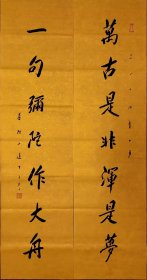 萬古是非渾是夢
一句彌陀作大舟